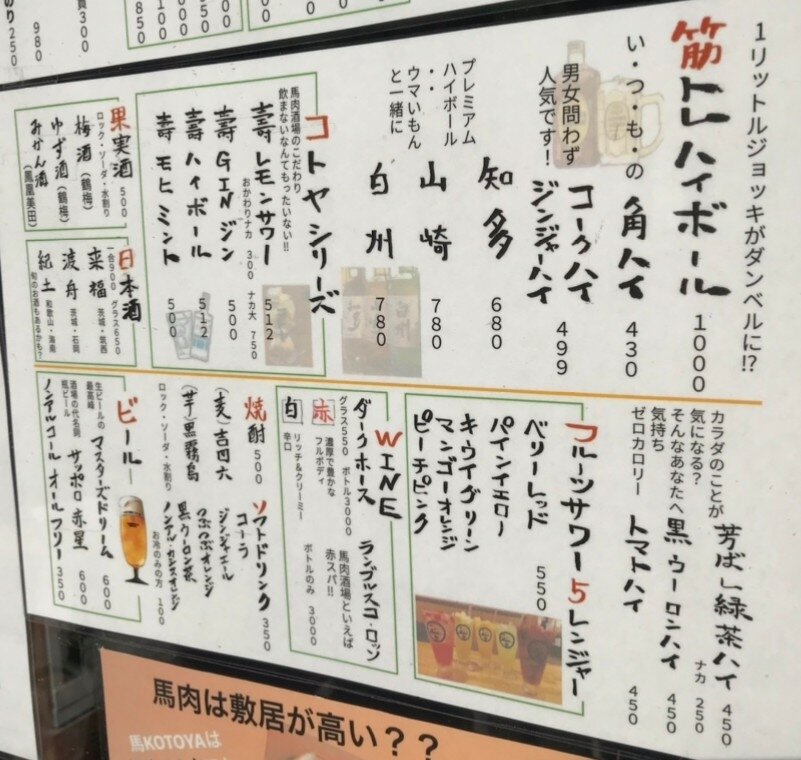 １リットルジョッキがダンベルに!?
筋トレハイボール 1000
い・つ・も・の 角ハイ 430
男女問わず
人気です！
コークハイ
ジンジャーハイ 499
プレミアム
ハイボール
・・
ウマいもん
と一緒に
知多 680
山崎 780
白州 780
コトヤシリーズ
馬肉酒場のこだわり
飲まないなんてもったいない!!
壽レモンサワー 512
おかわりナカ 300 ナカ大 750
壽GINジン 500
壽ハイボール 512
壽モヒミント 500
果実酒 500
ロック・ソーダ・水割り
梅酒（鶴梅）
ゆず酒（鶴梅）
みかん酒（鳳凰美田）
日本酒
一合900 グラス650
来福 茨城・筑西
渡舟 茨城・石岡
紀土 和歌山・海南
旬のお酒もあるかも？
カラダのことが
気になる？
そんなあなたへ
気持ち
ゼロカロリー
芳ばし緑茶ハイ 450
ナカ 250
黒ウーロンハイ 450
トマトハイ 450
フルーツサワー5レンジャー
ベリーレッド
パインイエロー
キウイグリーン
マンゴーオレンジ
ピーチピンク
550
WINE
ダークホース
グラス550 ボトル3000
赤 濃厚で豊かな
フルボディ
白 リッチ&クリーミー
辛口
ランブルスコ・ロッソ
馬肉酒場といえば
赤スパ!!
ボトルのみ 3000
焼酎 500
(麦)吉四六
(芋)黒霧島
ロック・ソーダ・水割り
ソフトドリンク 350
コーラ
ジンジャエール
つぶつぶオレンジ
黒ウーロン茶
ノンアル・カシスオレンジ
お冷のみの方 100
ビール
生ビールの
最高峰
マスターズドリーム 600
酒場の代名詞
瓶ビール
サッポロ赤星 600
ノンアルコール オールフリー 350
馬肉は敷居が高い？？
馬KOTOYAは